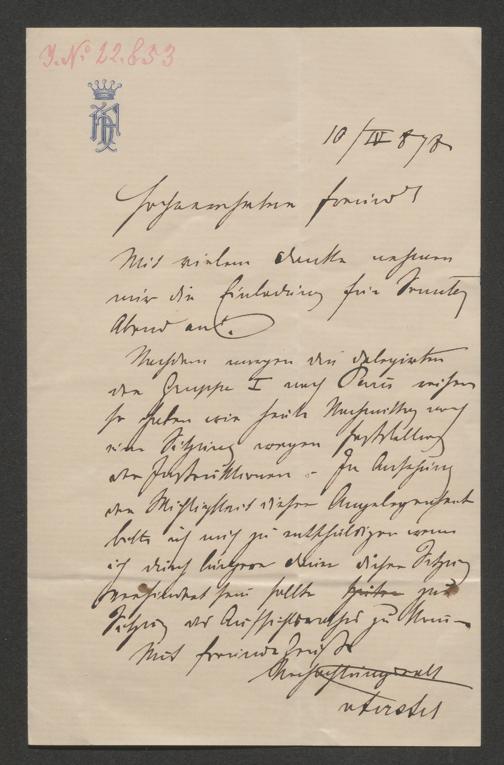 J. N. 22.853
10/IV 878
Hochverehrter Freund!
Mit vielem Danke nehmen
wir die Einladung für Sonntag
Abend an.
Nachdem morgen die Delegirten
der Gruppe I nach Paris reisen
so haben wir heute Nachmittag noch
eine Sitzung wegen Feststellung
der Instruktionen. In Ansehung
der Wichtigkeit dieser Angelegenheit
bitte ich mich zu entschuldigen wenn
ich durch längere Dauer dieser Sitzung
verhindert sein sollte zur
Sitzung des Aufsichtsrathes zu
Mit
Hochachtungsvoll
vFerstel